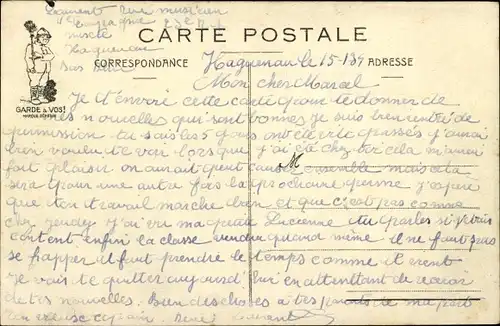 Laurent rené musicien
Compagnie
mixte
Haguenau
Bas Rhin
CARTE POSTALE
CORRESPONDANCE
ADRESSE
GARDE à VOS!
MARQUE DÉPOSÉE
Haguenau le 15-1 39
Mon cher Marcel
Je t'envoie cette carte pour te donner de
mes nouvelles qui sont bonnes je suis bien rentré de
permission tu sais les 5 jours ont été vite passés j'aurai
bien voulu te voir lorsque j'ai été chez toi cela m'aurai
fait plaisir on aurait peut causé ensemble mais cela
sera pour une autre fois la prochaine perme j'espère
que ton travail marche bien et que c'est pas comme
chez j'ai vu ma petite Lucienne tu parles si j'étais
content enfin la classe viendra quand même il ne faut pas
se frapper il faut prendre le temps comme il vient
Je vais te quitter aujourd'hui en attendant de recevoir
de tes nouvelles. Bien des choses à tes parents de ma part
ton copain René Laurent